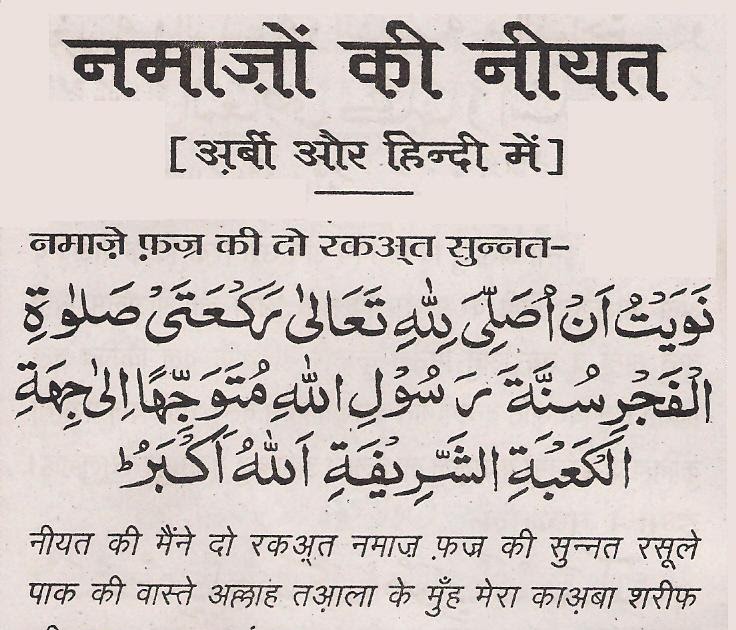 नमाज़ों की नीयत
[अ़र्बी और हिन्दी में]
नमाज़े फ़ज्र की दो रकअ्त सुन्नत–
نَوَيْتُ اَنْ اُصَلِّىَ لِلّٰهِ تَعَالٰى رَكْعَتَىْ صَلٰوةِ
الْفَجْرِ سُنَّةَ رَسُوْلِ اللّٰهِ مُتَوَجِّهًا اِلٰى جِهَةِ
الْكَعْبَةِ الشَّرِيْفَةِ اَللّٰهُ اَكْبَرُ ؕ
नीयत की मैंने दो रकअ़्त नमाज़ फ़ज्र की सुन्नत रसूले
पाक की वास्ते अल्लाह तआ़ला के मुँह मेरा काअ़बा शरीफ